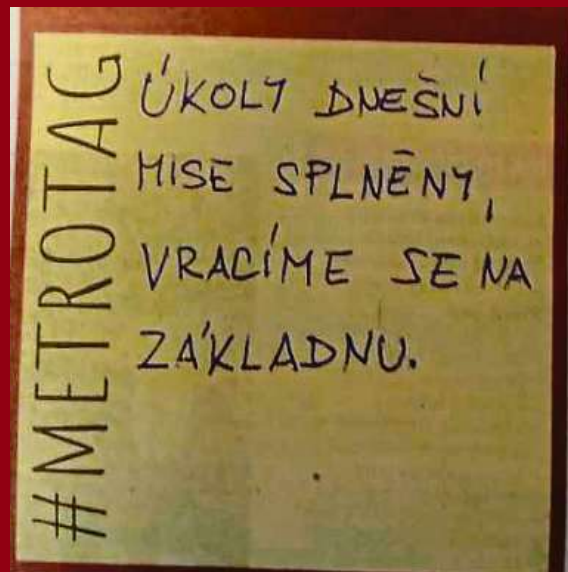 #METROTAG
ÚKOLY DNEŠNÍ
MISE SPLNĚNY,
VRACÍME SE NA
ZÁKLADNU.